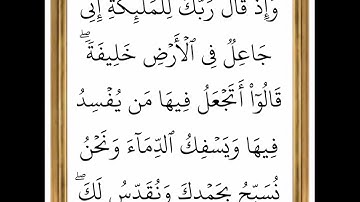 وَإِذۡ قَالَ رَبُّكَ لِلۡمَلَٰٓئِكَةِ إِنِّي
جَاعِلٞ فِي ٱلۡأَرۡضِ خَلِيفَةٗۖ
قَالُوٓاْ أَتَجۡعَلُ فِيهَا مَن يُفۡسِدُ
فِيهَا وَيَسۡفِكُ ٱلدِّمَآءَ وَنَحۡنُ
نُسَبِّحُ بِحَمۡدِكَ وَنُقَدِّسُ لَكَۖ